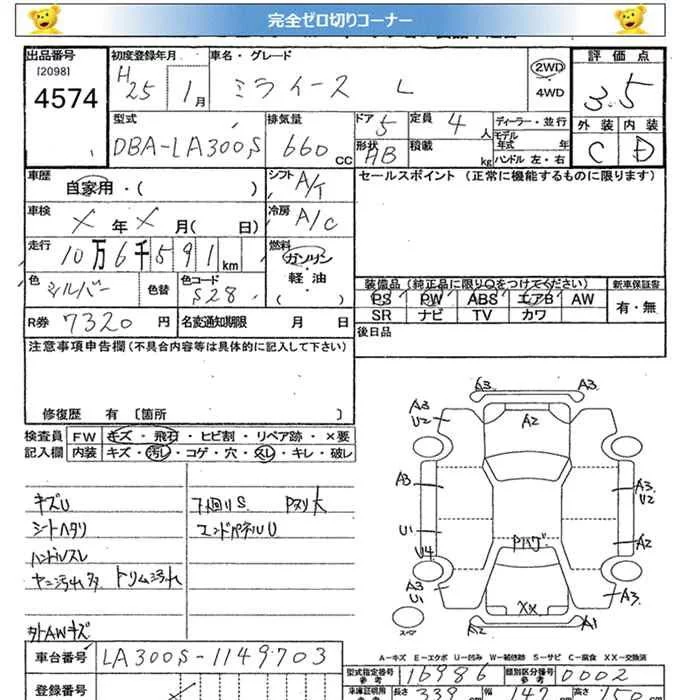 完全ゼロ切りコーナー
出品番号 [2098] 4574
初度登録年月 H25 1月
車名・グレード ミライース L
2WD・4WD
評価点 3.5
外装 C 内装 D
型式 DBA-LA300S
排気量 660cc
ドア 5 形状 HB
定員 4人
積載 kg
ディーラー・並行
モデル年式 年
ハンドル 左・右
車歴 自家用・( )
シフト A/T
セールスポイント (正常に機能するものに限ります)
車検 X年X月( 日)
冷房 A/C
走行 10万6千591km
燃料 ガソリン・軽油( )
色 シルバー 色替 色コード S28
装備品(純正品に限り○をつけてください)
PS PW ABS エアB AW
SR ナビ TV カワ
新車保証書 有・無
R券 7320円
名変通知期限 月 日
後日品
注意事項申告欄(不具合内容等は具体的に記入して下さい)
修復歴 有〔箇所 〕
検査員記入欄
FW キズ・飛石・ヒビ割・リペア跡・×要
内装 キズ・汚レ・コゲ・穴・スレ・キレ・破レ
キズU
シートヘタリ
ハンドルスレ
ヤニ汚れ多 トリム汚れ
外AWキズ
下回りS Pヌリ大
エンドパネルU
A3 A3
A3 U2
A2
A3
A3 U2
U1
U4
A2
Pハゲ
A3 U1
A3
XX
A2
A1
スペア
A-キズ E-エクボ U-凹み W-補修跡 S-サビ C-腐食 XX-交換済
車台番号 LA300S-1149703
型式指定番号 参考 16986
類別区分番号 参考 0002
登録番号
車庫証明用 長さ 339cm 幅 147cm 高さ 150cm